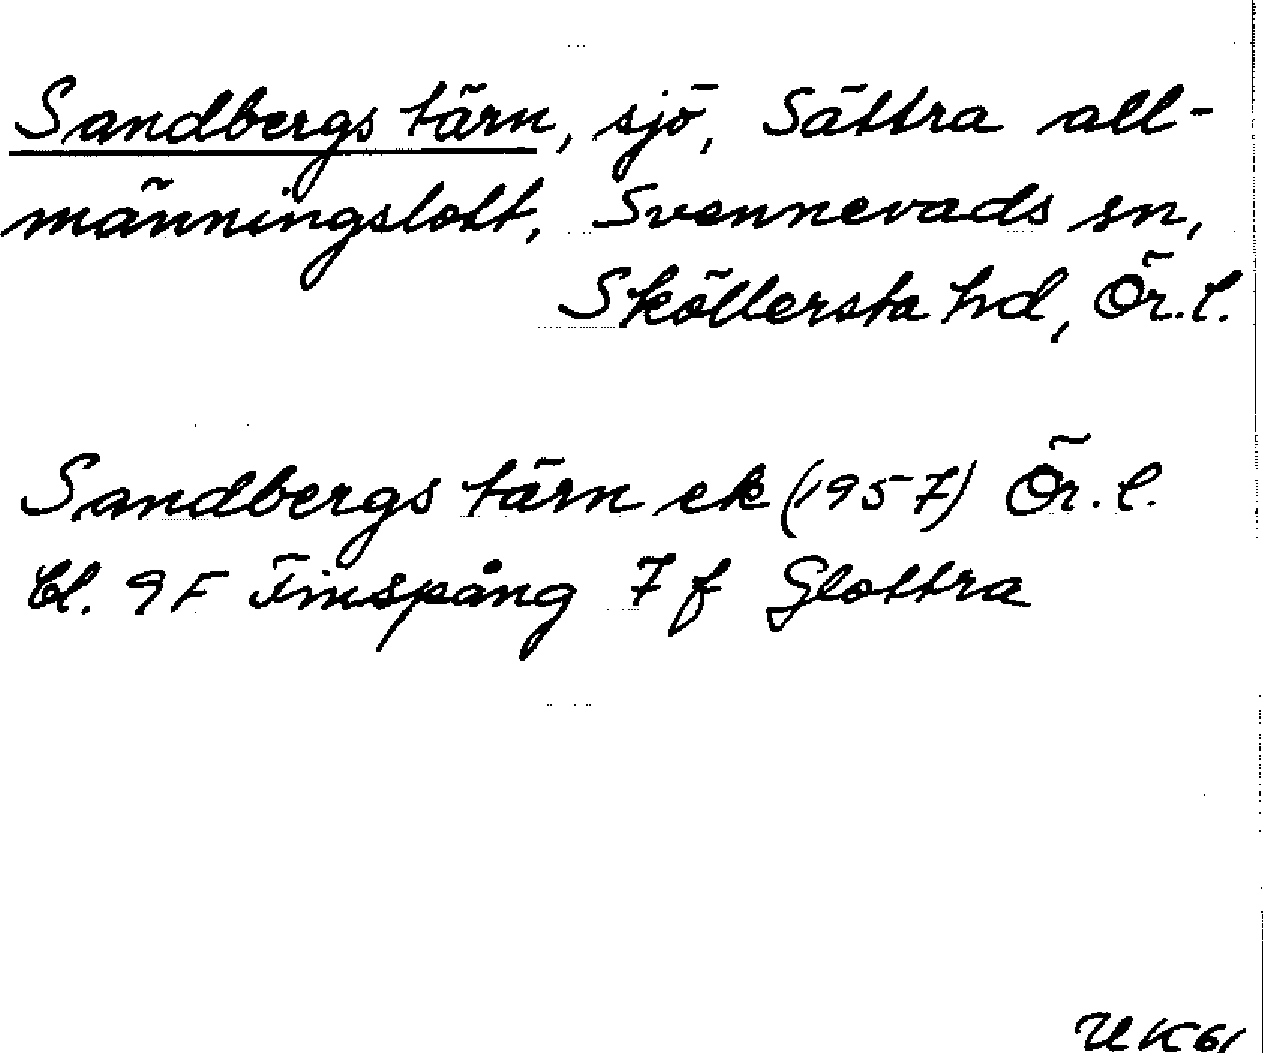 Sandbergs tärn, sjö, Sättra all-
männingslott, Svennevads sn,
Sköllersta hd, Ör.l.
Sandbergs tärn ek (1957) Ör.l.
bl. 9F Finspång 7f Glottra
UK 61